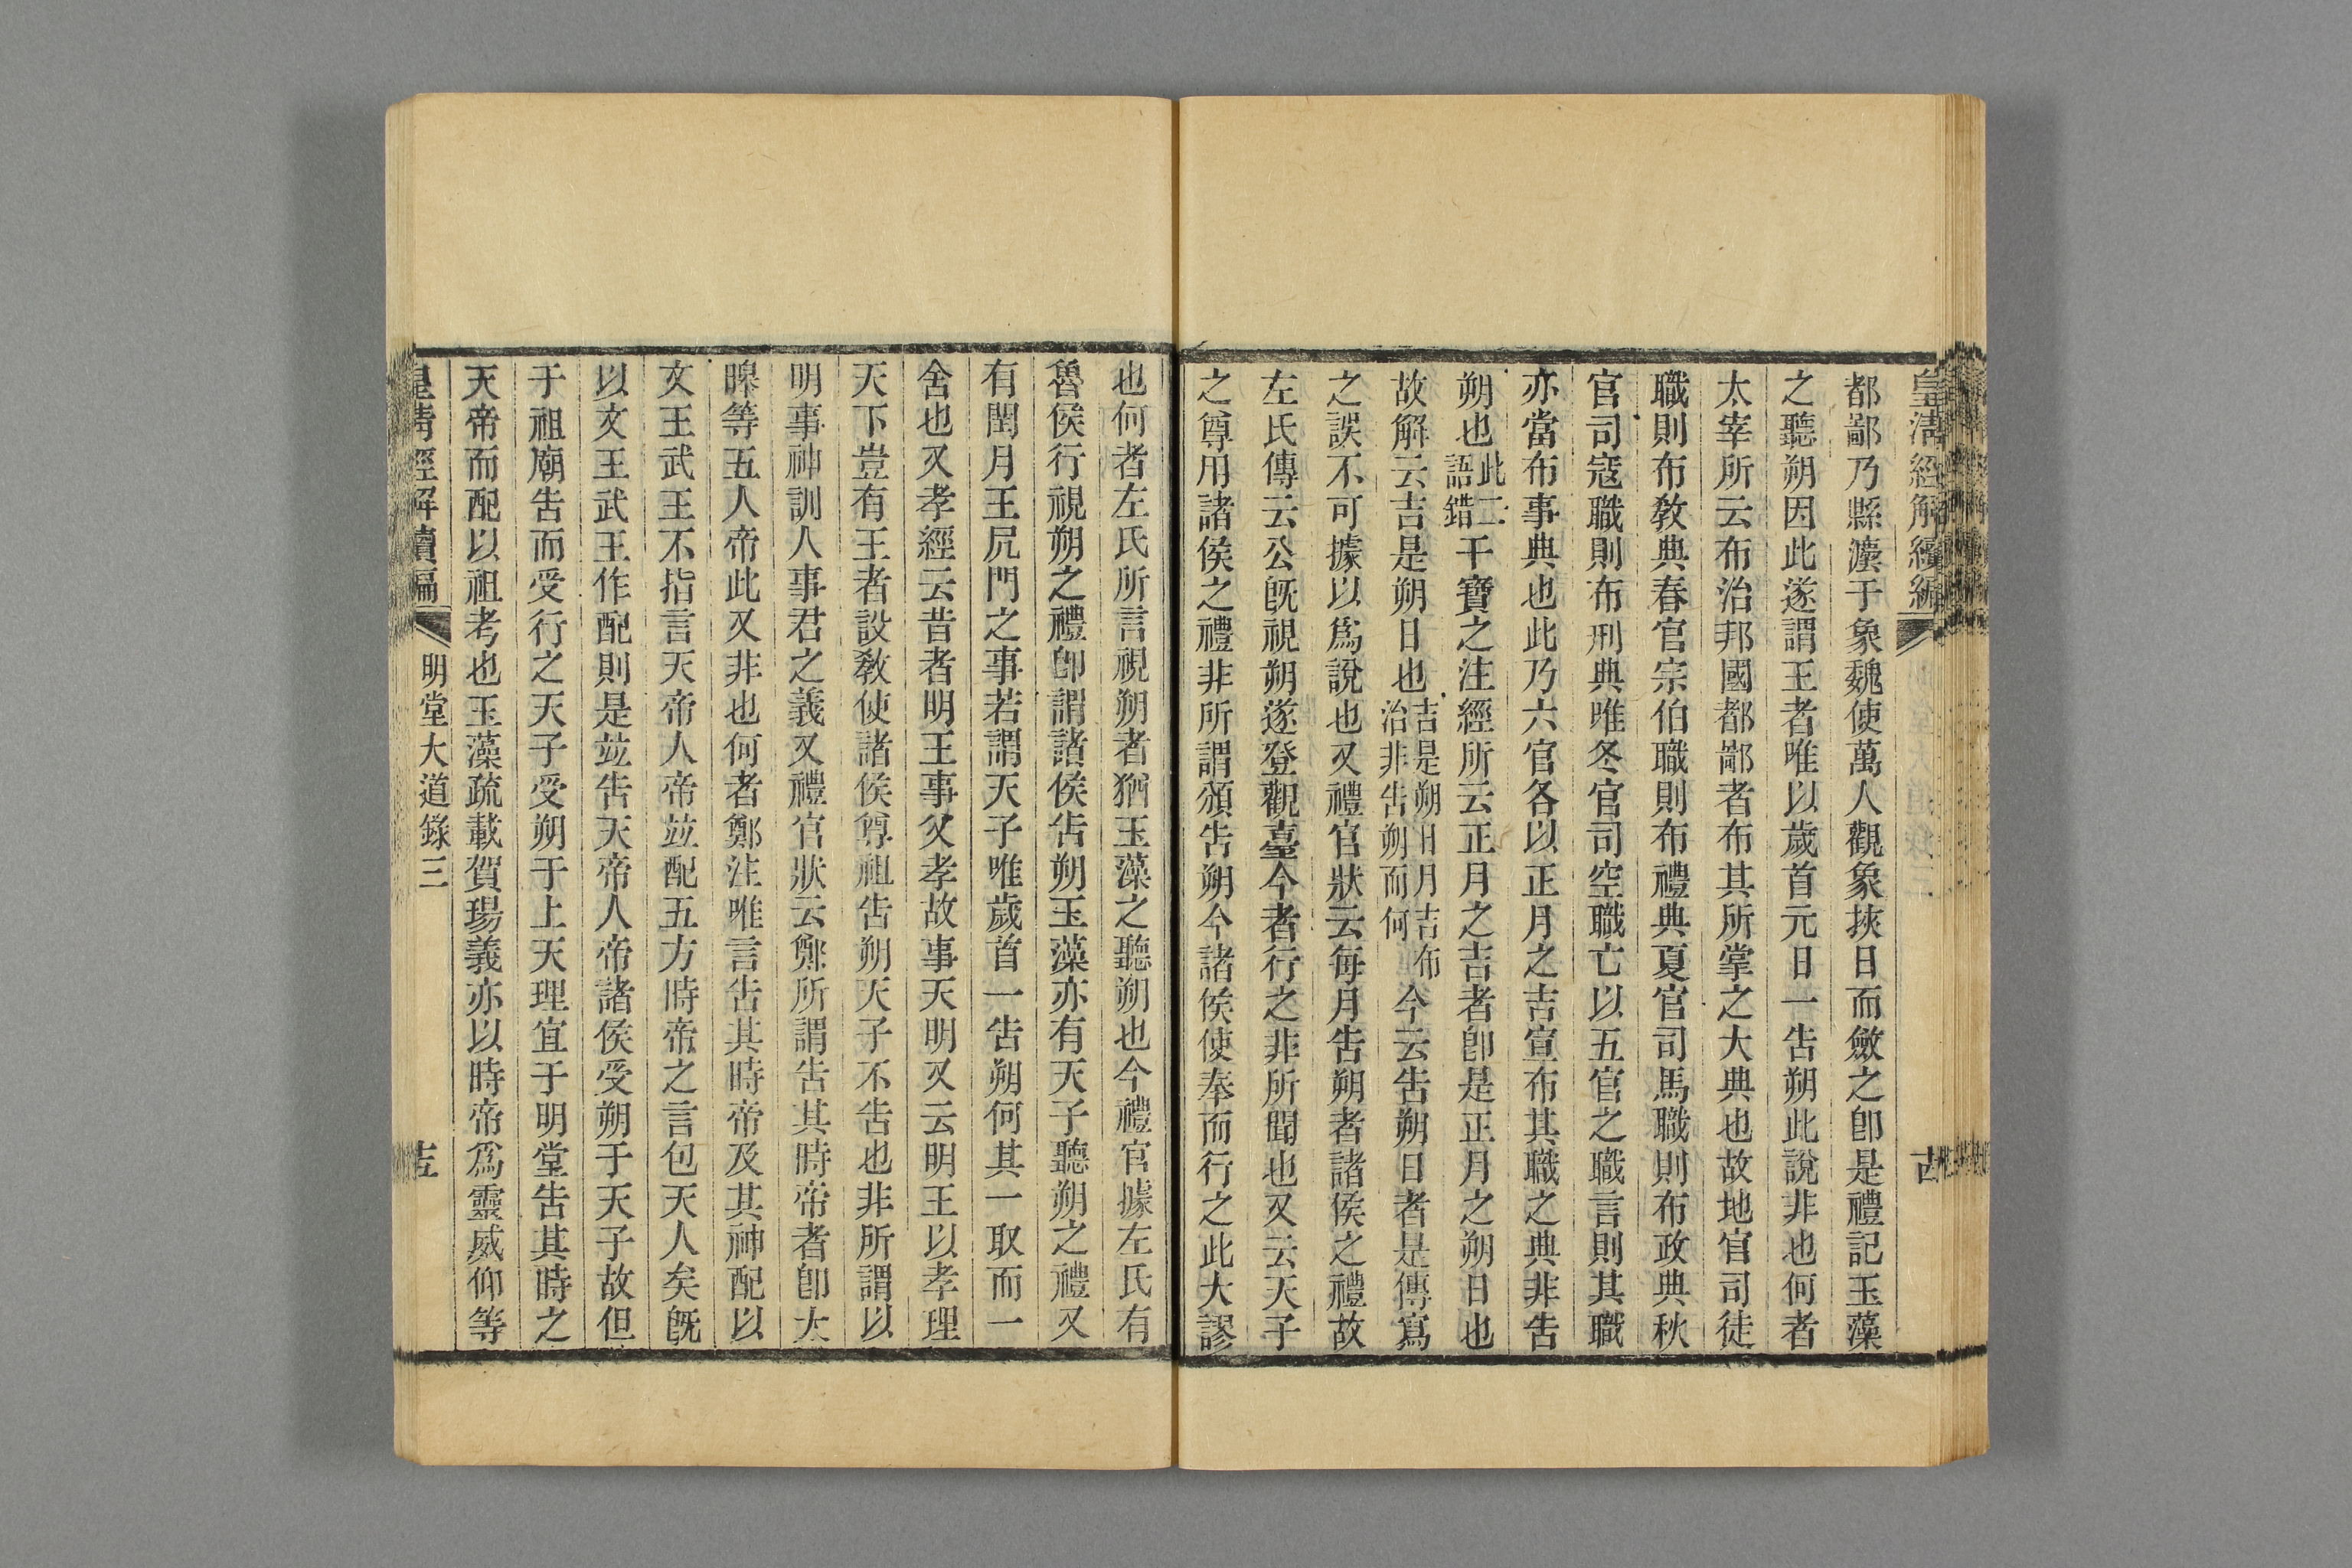 皇清經解續編
都鄙乃縣灋于象魏使萬人觀象挾日而斂之卽是禮記玉藻
之聽朔因此遂謂王者唯以歲首元日一告朔此說非也何者
太宰所云布治邦國都鄙者布其所掌之大典也故地官司徒
職則布敎典春官宗伯職則布禮典夏官司馬職則布政典秋
官司寇職則布刑典唯冬官司空職亡以五官之職言則其職
亦當布事典也此乃六官各以正月之吉宣布其職之典非告
朔也此二語錯干寶之注經所云正月之吉者卽是正月之朔日也
故解云吉是朔日也吉是朔日月吉布治非告朔而何今云告朔日者是傳寫
之誤不可據以爲說也又禮官狀云每月告朔者諸侯之禮故
左氏傳云公旣視朔遂登觀臺今者行之非所聞也又云天子
之尊用諸侯之禮非所謂頒告朔今諸侯使奉而行之此大謬
也何者左氏所言視朔者猶玉藻之聽朔也今禮官據左氏有
魯侯行視朔之禮卽謂諸侯告朔玉藻亦有天子聽朔之禮又
有閏月王凥門之事若謂天子唯歲首一告朔何其一取而一
舍也又孝經云昔者明王事父孝故事天明又云明王以孝理
天下豈有王者設敎使諸侯尊祖告朔天子不告也非所謂以
明事神訓人事君之義又禮官狀云鄭所謂告其時帝者卽大
皞等五人帝此又非也何者鄭注唯言告其時帝及其神配以
文王武王不指言天帝人帝竝配五方時帝之言包天人矣旣
以文王武王作配則是竝告天帝人帝諸侯受朔于天子故但
于祖廟告而受行之天子受朔于上天理宜于明堂告其時之
天帝而配以祖考也玉藻疏載賀瑒義亦以時帝爲靈威仰等
皇淸經解續編
明堂大道錄三